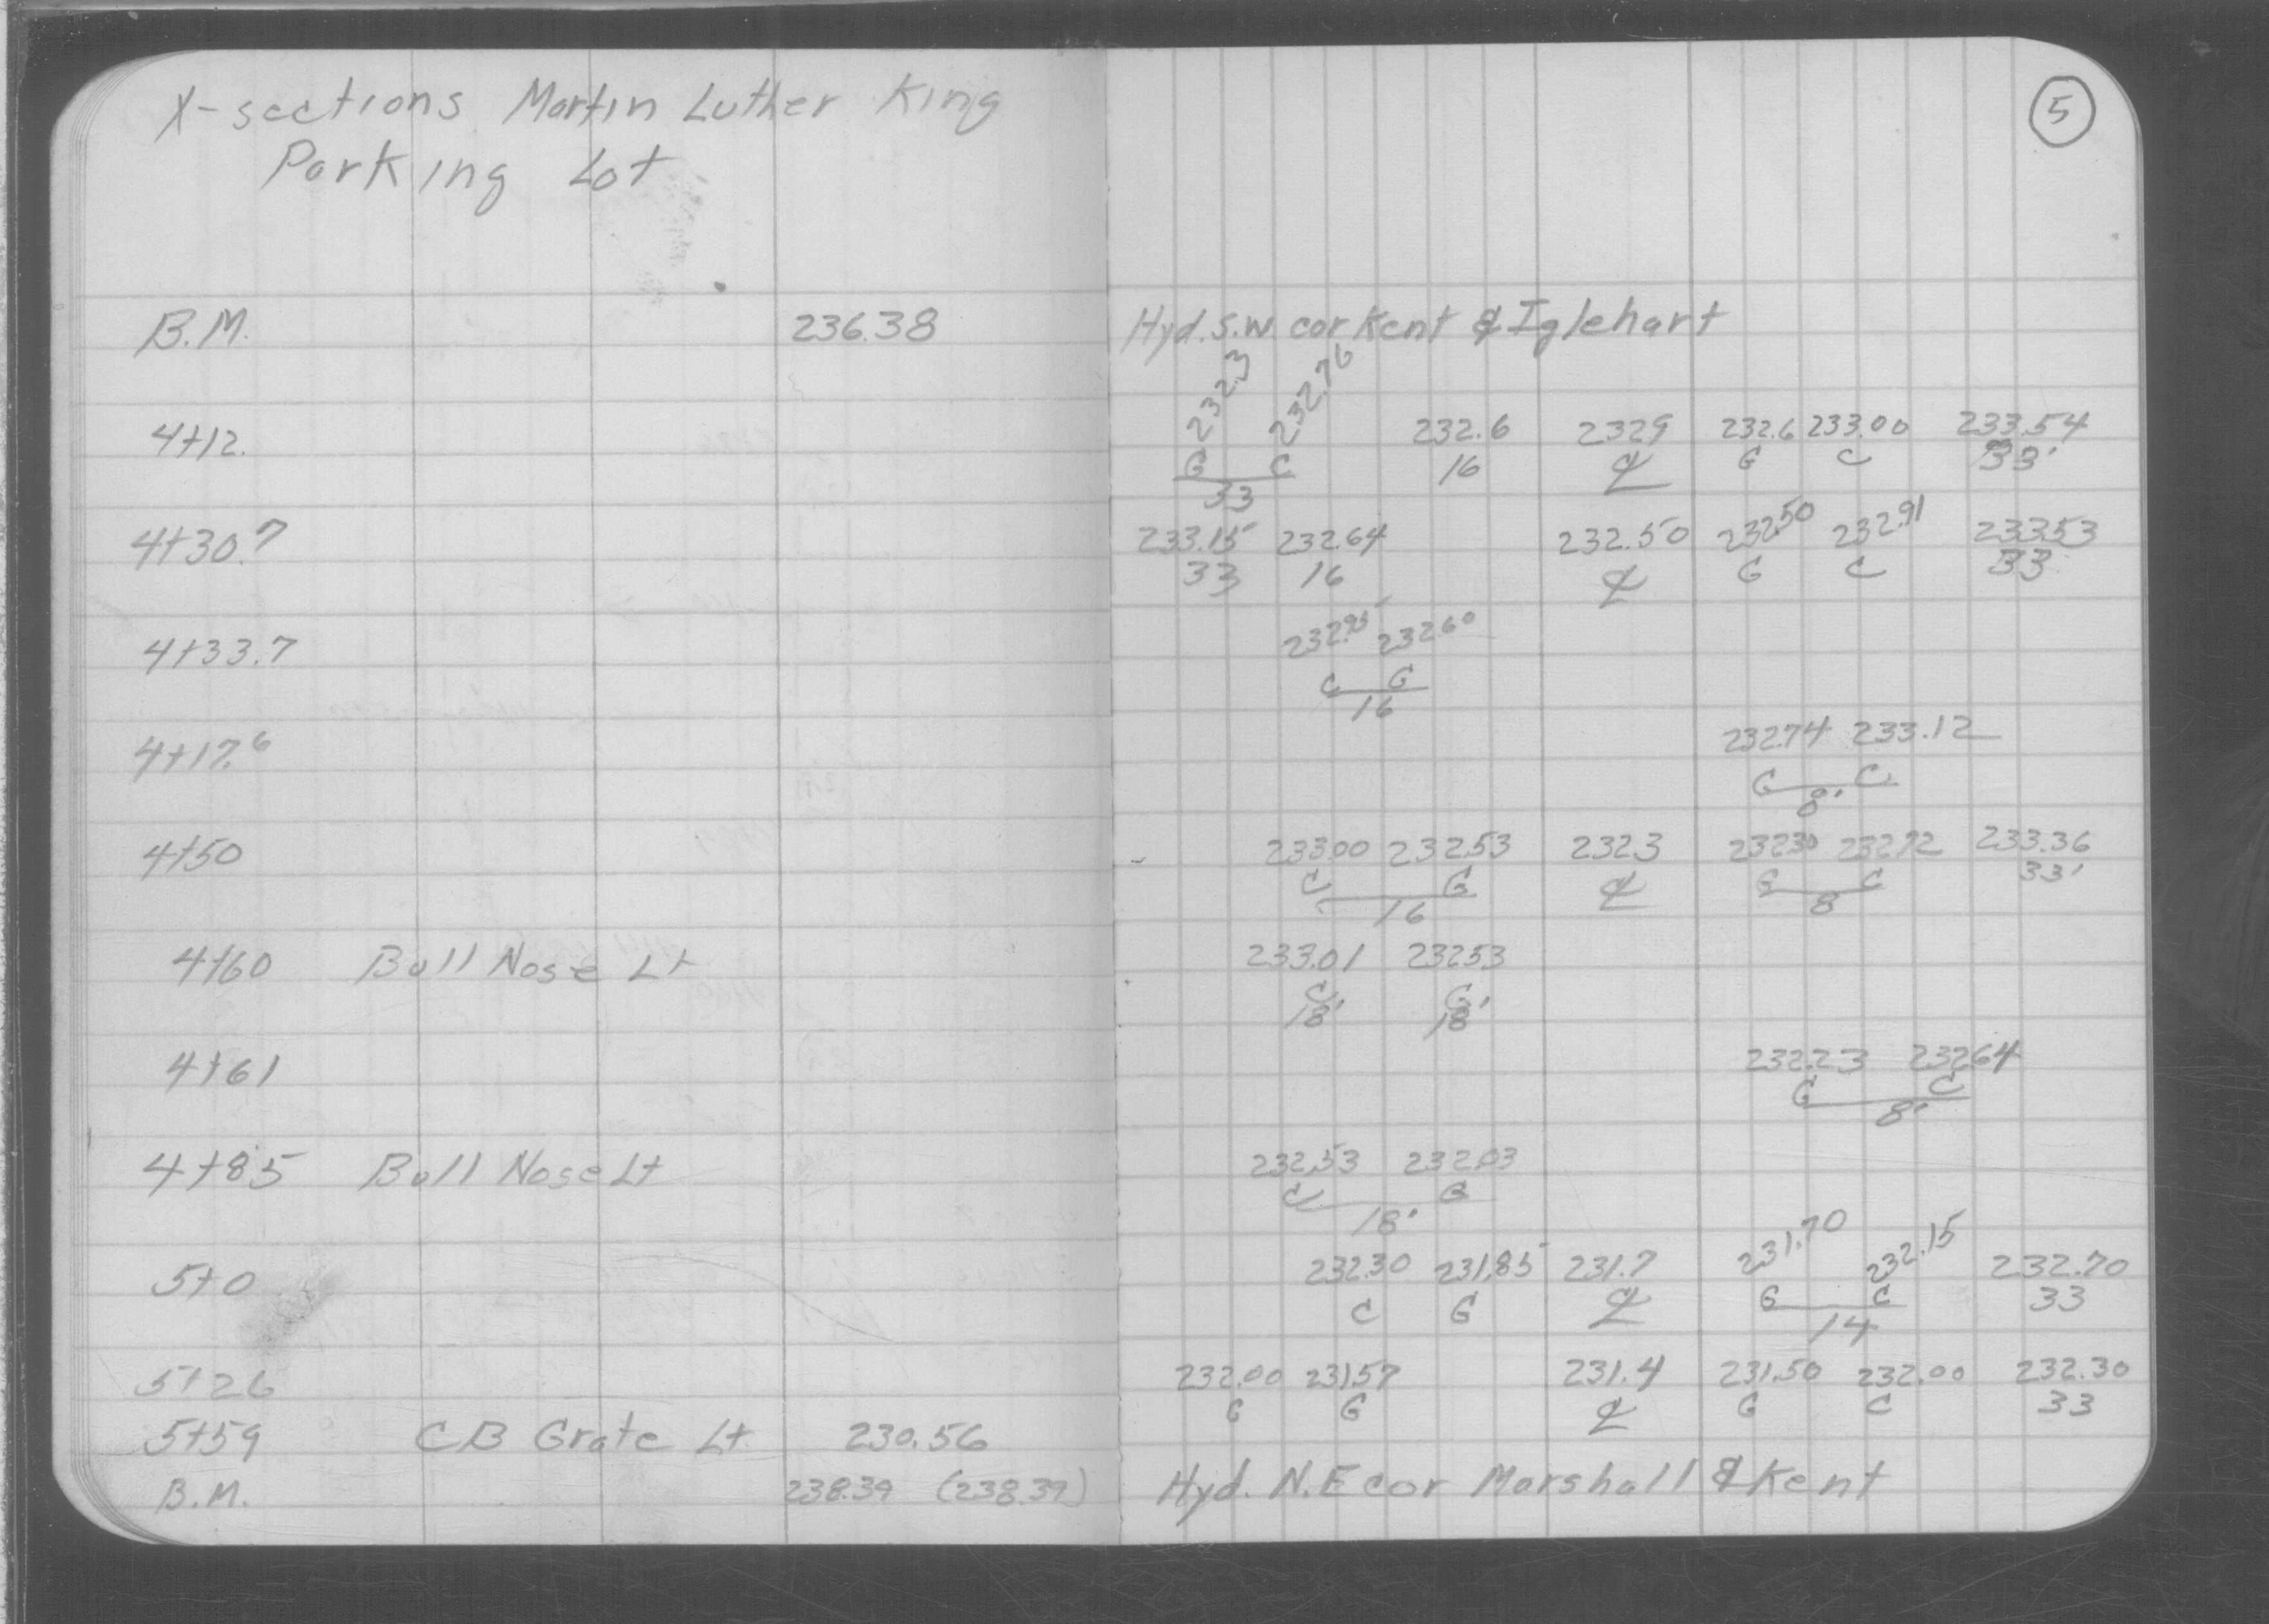 X-sections Martin Luther King
Parking Lot
5
B.M. 236.38 Hyd. S.W. cor Kent & Iglehart
232.3 232.76
4+12. 232.6 232.9 232.6 233.00 233.54
G C 16 ℄ G C 33'
33
4+30.7 233.15 232.64 232.50 232.50 232.91 233.53
33 16 ℄ G C 33
4+33.7 232.95 232.60
C G
16
4+17.6 232.74 233.12
G C
8'
4+50 233.00 232.53 232.3 232.30 232.72 233.36
C G ℄ G C 33'
16 8
4+60 Bull Nose Lt 233.01 232.53
C G
18' 18'
4+61 232.23 232.64
G C
8'
4+85 Bull Nose Lt 232.53 232.03
C G
18'
5+0 232.30 231.85 231.7 231.70 232.15 232.70
C G ℄ G C 33
14
5+26 232.00 231.57 231.4 231.50 232.00 232.30
G G ℄ G C 33
5+59 CB Grate Lt 230.56
B.M. 238.39 (238.39) Hyd. N.E cor Marshall & Kent